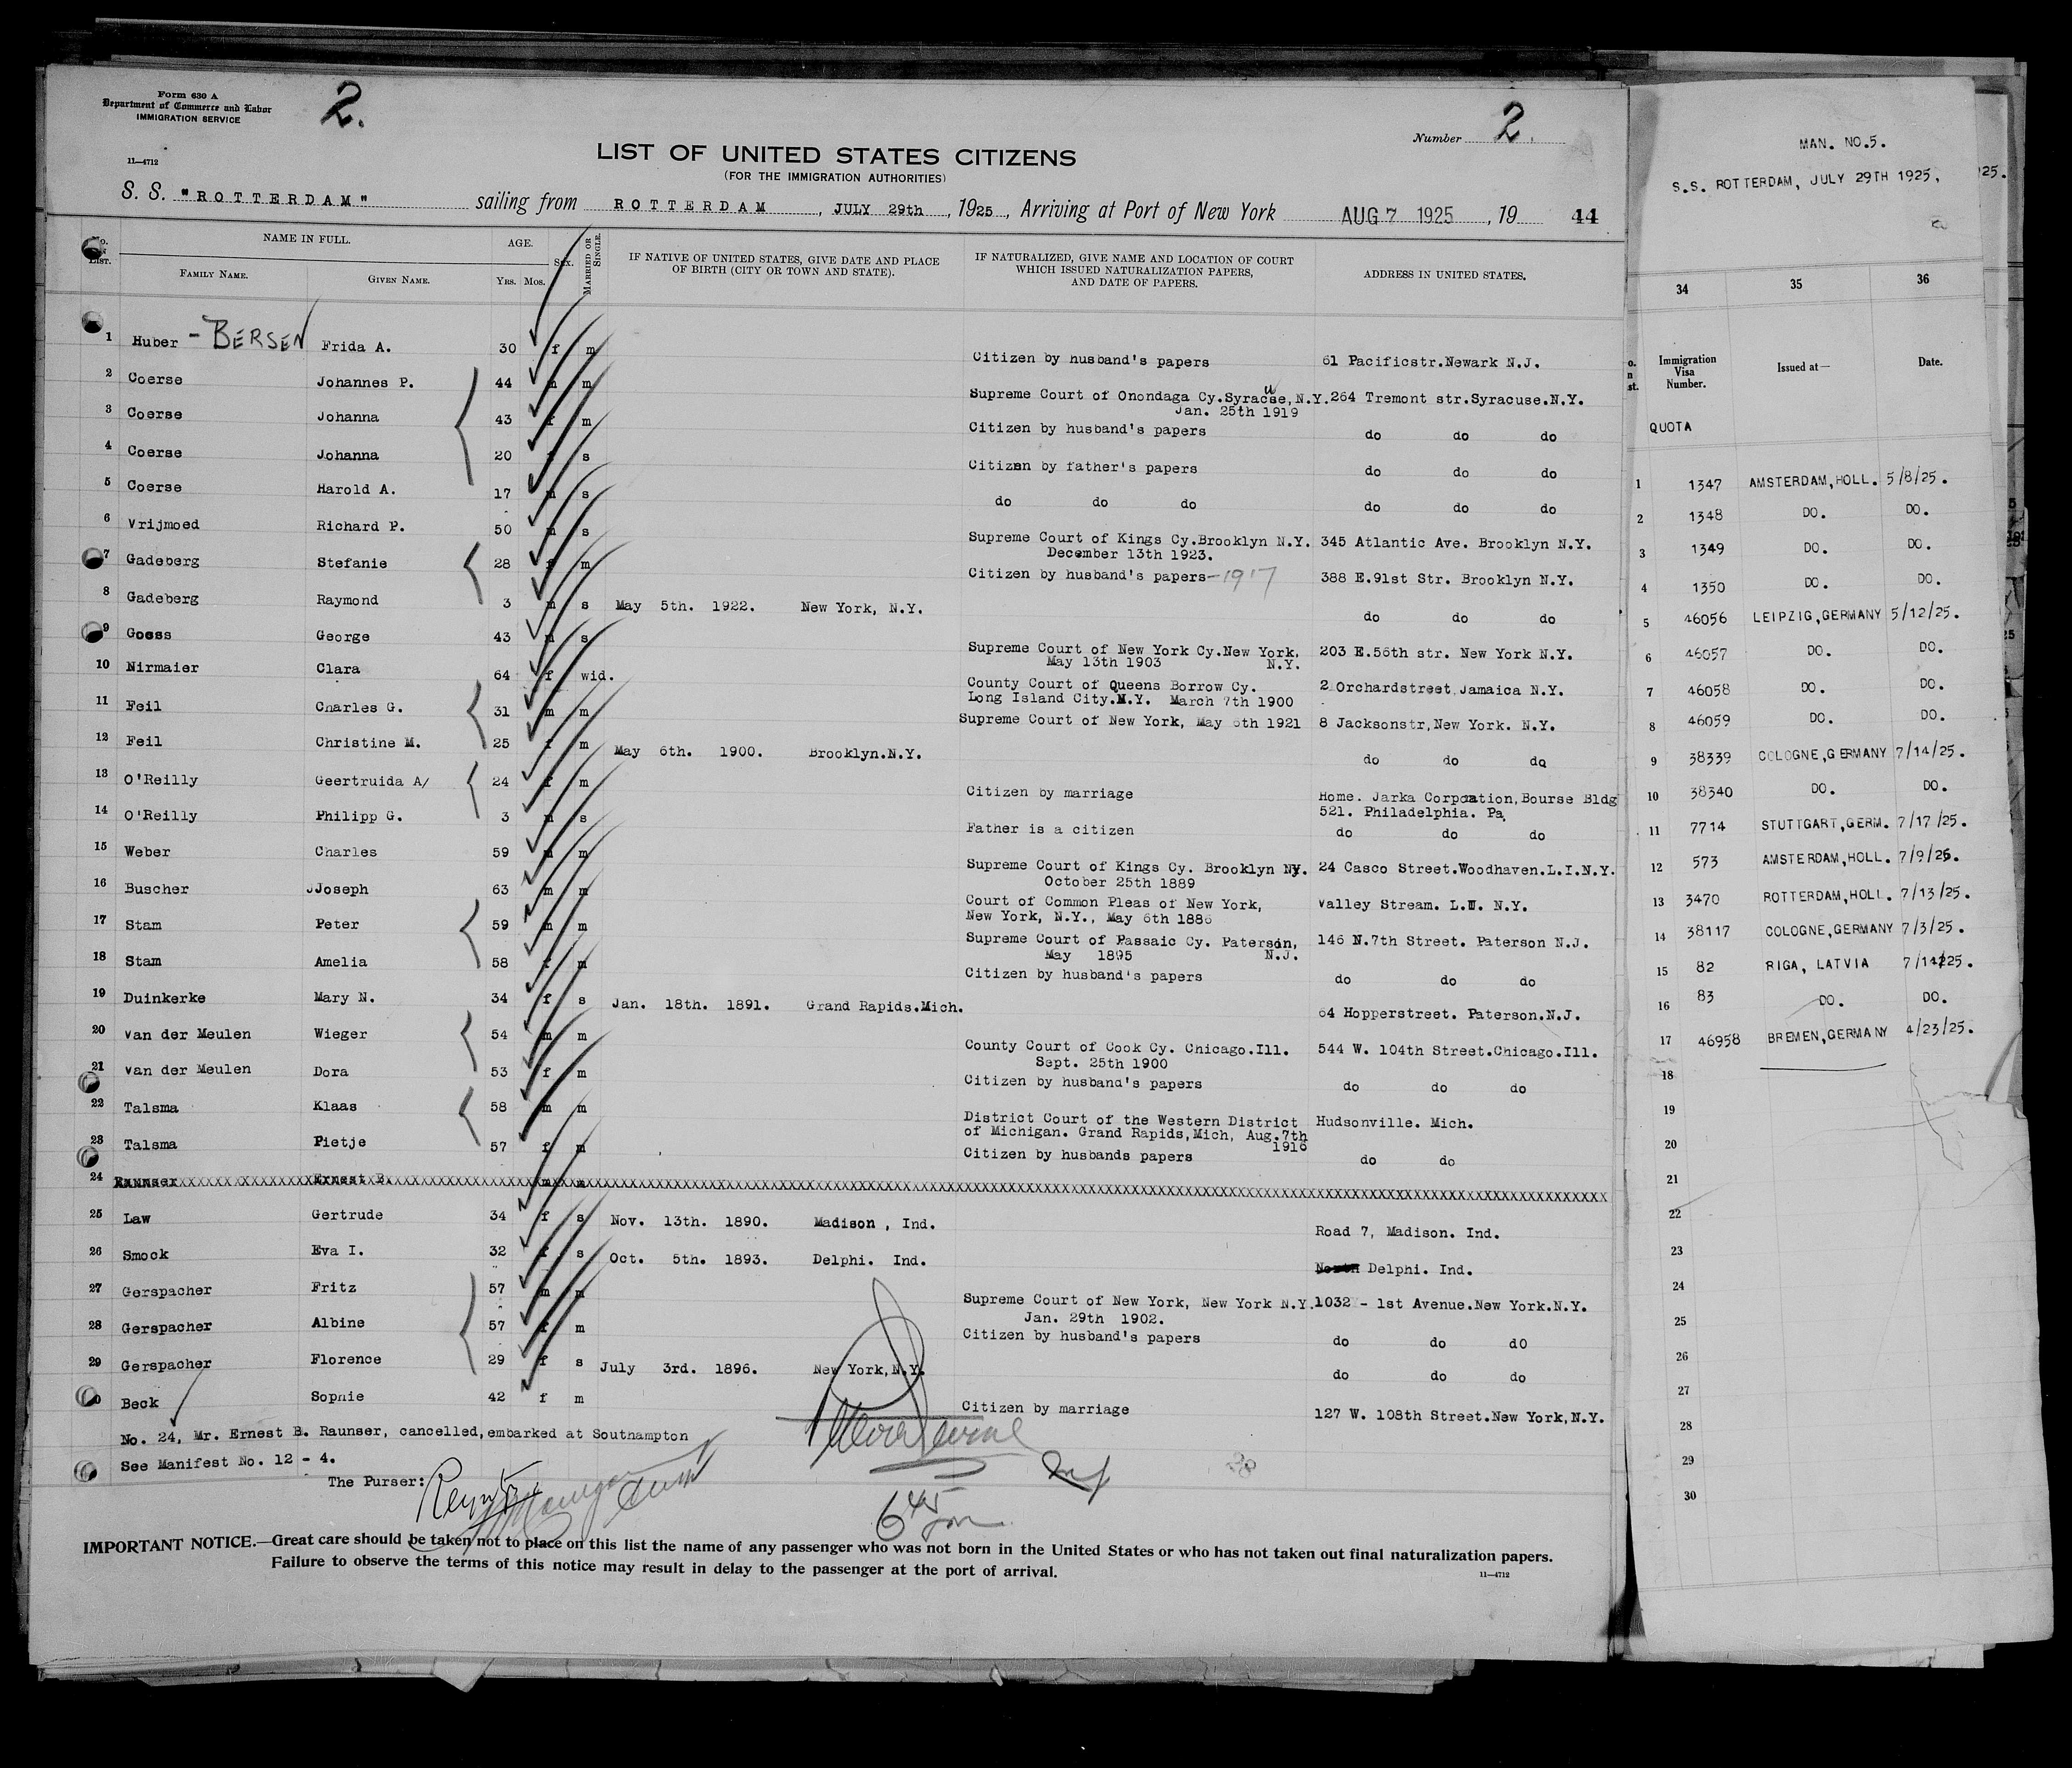 Form 630 A
Department of Commerce and Labor
IMMIGRATION SERVICE
2.
Number 2.
11—4712
LIST OF UNITED STATES CITIZENS
(FOR THE IMMIGRATION AUTHORITIES)
S. S. "ROTTERDAM" sailing from ROTTERDAM, JULY 29th, 1925, Arriving at Port of New York AUG 7 1925, 19 44
No. on List. NAME IN FULL. AGE. Sex. Married or Single. IF NATIVE OF UNITED STATES, GIVE DATE AND PLACE OF BIRTH (CITY OR TOWN AND STATE). IF NATURALIZED, GIVE NAME AND LOCATION OF COURT WHICH ISSUED NATURALIZATION PAPERS, AND DATE OF PAPERS. ADDRESS IN UNITED STATES.
Family Name. Given Name. Yrs. Mos.
1 Huber - BERSEN Frida A. 30 f m Citizen by husband's papers 61 Pacificstr.Newark N.J.
2 Coerse Johannes P. 44 m m Supreme Court of Onondaga Cy.Syracuse,N.Y. 264 Tremont str.Syracuse.N.Y.
Jan. 25th 1919
3 Coerse Johanna 43 f m Citizen by husband's papers do do do
4 Coerse Johanna 20 f s Citizen by father's papers do do do
5 Coerse Harold A. 17 m s do do do do do do
6 Vrijmoed Richard P. 50 m s Supreme Court of Kings Cy.Brooklyn N.Y. 345 Atlantic Ave. Brooklyn N.Y.
December 13th 1923.
7 Gadeberg Stefanie 28 f m Citizen by husband's papers-1917 388 E.91st Str. Brooklyn N.Y.
8 Gadeberg Raymond 3 m s May 5th. 1922. New York, N.Y. do do do
9 Goess George 43 m s Supreme Court of New York Cy.New York, 203 E.56th str. New York N.Y.
May 13th 1903 N.Y.
10 Nirmaier Clara 64 f wid. County Court of Queens Borrow Cy. 2 Orchardstreet,Jamaica N.Y.
Long Island City.N.Y. March 7th 1900
11 Feil Charles G. 31 m m Supreme Court of New York, May 6th 1921 8 Jacksonstr,New York. N.Y.
12 Feil Christine M. 25 f m May 6th. 1900. Brooklyn.N.Y. do do do
13 O'Reilly Geertruida A/ 24 f m Citizen by marriage Home. Jarka Corporation,Bourse Bldg
521. Philadelphia. Pa.
14 O'Reilly Philipp G. 3 m s Father is a citizen do do do
15 Weber Charles 59 m m Supreme Court of Kings Cy. Brooklyn Ny. 24 Casco Street.Woodhaven.L.I.N.Y.
October 25th 1889
16 Buscher Joseph 63 m m Court of Common Pleas of New York, Valley Stream. L.I. N.Y.
New York, N.Y., May 6th 1886
17 Stam Peter 59 m m Supreme Court of Passaic Cy. Paterson, 146 N.7th Street. Paterson N.J.
May 1895 N.J.
18 Stam Amelia 58 f m Citizen by husband's papers do do do
19 Duinkerke Mary N. 34 f s Jan. 18th. 1891. Grand Rapids.Mich. 64 Hopperstreet. Paterson.N.J.
20 van der Meulen Wieger 54 m m County Court of Cook Cy. Chicago.Ill. 544 W. 104th Street.Chicago.Ill.
Sept. 25th 1900
21 van der Meulen Dora 53 f m Citizen by husband's papers do do do
22 Talsma Klaas 58 m m District Court of the Western District Hudsonville. Mich.
of Michigan. Grand Rapids,Mich, Aug.7th
1916
23 Talsma Pietje 57 f m Citizen by husbands papers do do
24 Raunser Ernest B. m m
25 Law Gertrude 34 f s Nov. 13th. 1890. Madison , Ind. Road 7, Madison. Ind.
26 Smock Eva I. 32 f s Oct. 5th. 1893. Delphi. Ind. North Delphi. Ind.
27 Gerspacher Fritz 57 m m Supreme Court of New York, New York N.Y. 1032 - 1st Avenue.New York.N.Y.
Jan. 29th 1902.
28 Gerspacher Albine 57 f m Citizen by husband's papers do do dO
29 Gerspacher Florence 29 f s July 3rd. 1896. New York,N.Y. do do do
30 Beck Sophie 42 f m Citizen by marriage 127 W. 108th Street.New York,N.Y.
No. 24, Mr. Ernest B. Raunser, cancelled,embarked at Southampton
See Manifest No. 12 - 4.
The Purser:
6 45 pm
IMPORTANT NOTICE.—Great care should be taken not to place on this list the name of any passenger who was not born in the United States or who has not taken out final naturalization papers.
Failure to observe the terms of this notice may result in delay to the passenger at the port of arrival.
11—4712
MAN. NO.5.
S.S. ROTTERDAM, JULY 29TH 1925, 25.
34 35 36
Immigration Visa Number. Issued at— Date.
QUOTA
1 1347 AMSTERDAM,HOLL. 5/8/25.
2 1348 DO. DO.
3 1349 DO. DO.
4 1350 DO. DO.
5 46056 LEIPZIG,GERMANY 5/12/25.
6 46057 DO. DO.
7 46058 DO. DO.
8 46059 DO. DO.
9 38339 COLOGNE,GERMANY 7/14/25.
10 38340 DO. DO.
11 7714 STUTTGART,GERM. 7/17/25.
12 573 AMSTERDAM,HOLL. 7/9/25.
13 3470 ROTTERDAM,HOLL. 7/13/25.
14 38117 COLOGNE,GERMANY 7/3/25.
15 82 RIGA, LATVIA 7/14/25.
16 83 DO. DO.
17 46958 BREMEN,GERMANY 4/23/25.
18
19
20
21
22
23
24
25
26
27
28
29
30